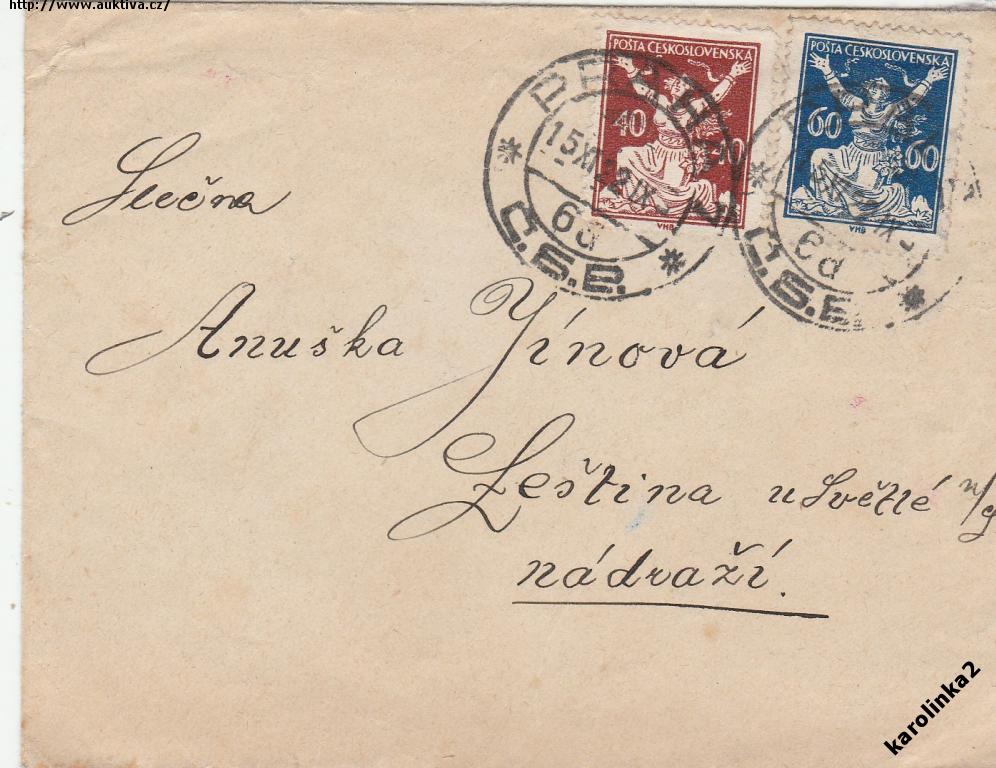 http://www.auktiva.cz/
POŠTA ČESKOSLOVENSKA
40
40
VHB
POŠTA ČESKOSLOVENSKA
60
60
VHB
PRAHA
15.XI.22 IX
6a
Č.S.P.
6a
Č.S.P.
Slečna
Anuška Jínová
Leština u Světlé n/s
nádraží.
karolinka2